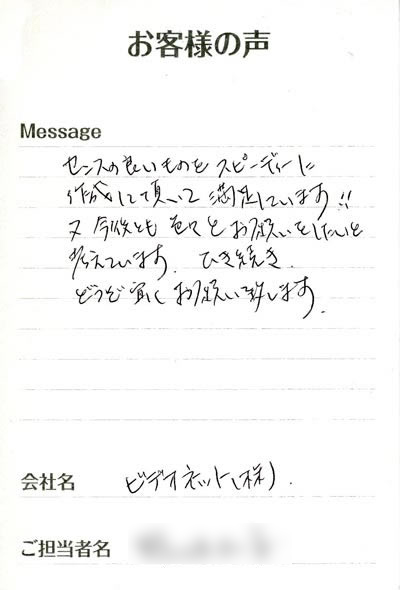 お客様の声
Message
センスの良いものをスピーディーに
作成して頂いて満足しています!!
又今後とも色々とお願いをしたいと
考えています. ひき続き.
どうぞ宜しくお願い致します.
会社名 ビデオネット(株).
ご担当者名